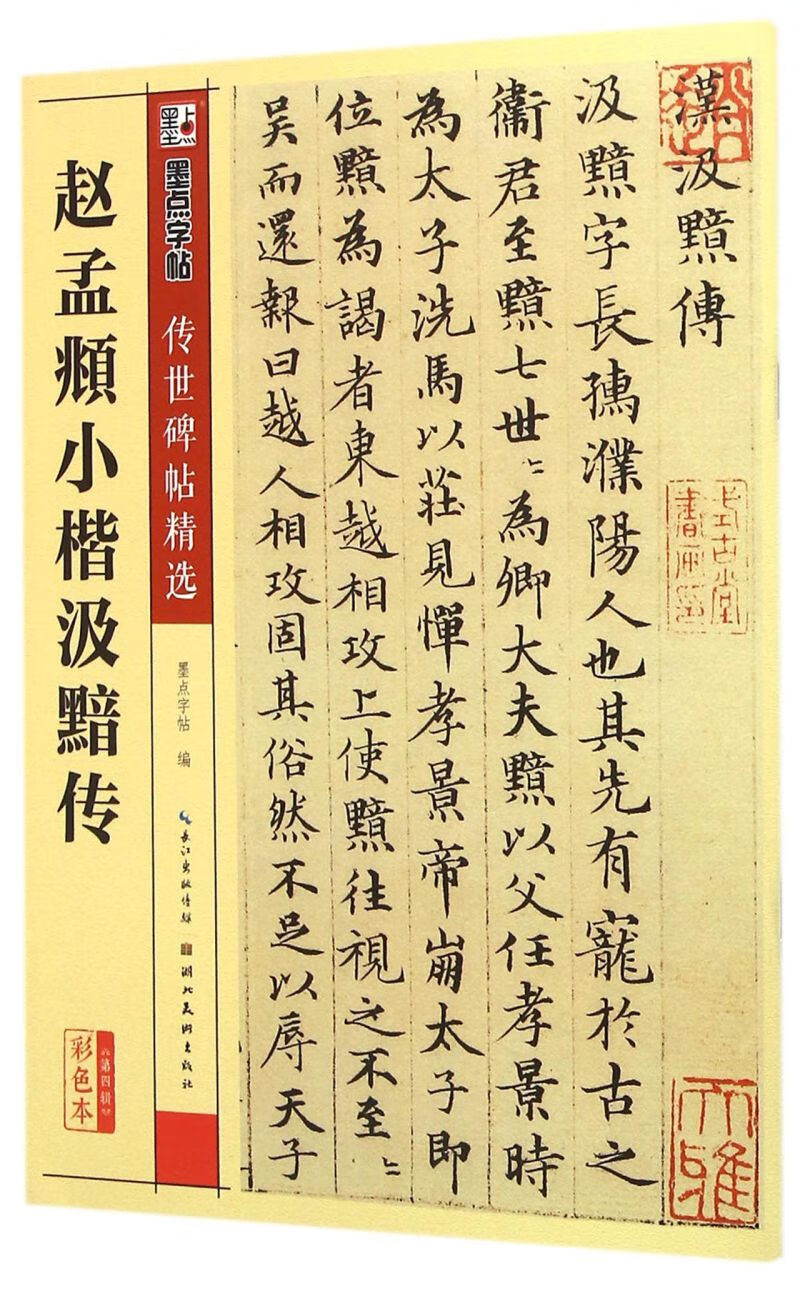 赵孟頫小楷汲黯传
墨点
墨点字帖
传世碑帖精选
墨点字帖 编
长江出版传媒
湖北美术出版社
彩色本
第四辑
漢汲黯傳
汲黯字長孺濮陽人也其先有寵於古之
衞君至黯七世〻為卿大夫黯以父任孝景時
為太子洗馬以莊見憚孝景帝崩太子即
位黯為謁者東越相攻上使黯往視之不至〻
吳而還報曰越人相攻固其俗然不足以辱天子
大雅